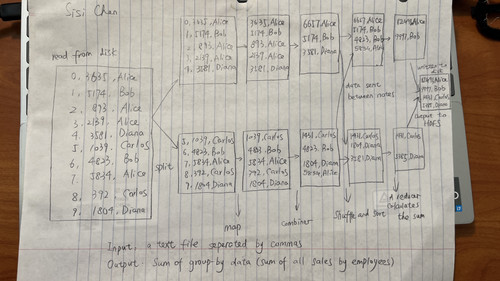 Sisi Chen
read from disk
0, 3635, Alice
1, 5174, Bob
2, 893, Alice
3, 2139, Alice
4, 3581, Diana
5, 1039, Carlos
6, 4823, Bob
7, 5834, Alice
8, 392, Carlos
9, 1804, Diana
split
0, 3635, Alice
1, 5174, Bob
2, 893, Alice
3, 2139, Alice
4, 3581, Diana
3635, Alice
5174, Bob
893, Alice
2139, Alice
3581, Diana
6667, Alice
5174, Bob
3581, Diana
6667, Alice
5174, Bob
4823, Bob
5834, Alice
12501, Alice
9997, Bob
data sent
between nodes
5, 1039, Carlos
6, 4823, Bob
7, 5834, Alice
8, 392, Carlos
9, 1804, Diana
1039, Carlos
4823, Bob
5834, Alice
392, Carlos
1804, Diana
1431, Carlos
4823, Bob
1804, Diana
5834, Alice
1431, Carlos
1804, Diana
3581, Diana
1431, Carlos
5385, Diana
12501, Alice
9997, Bob
1431, Carlos
5385, Diana
HDFS
map
combiner
Shuffle and sort
A reducer
calculates
the sum
Input: a text file separated by commas
Output: Sum of group-by data (sum of all sales by employees)